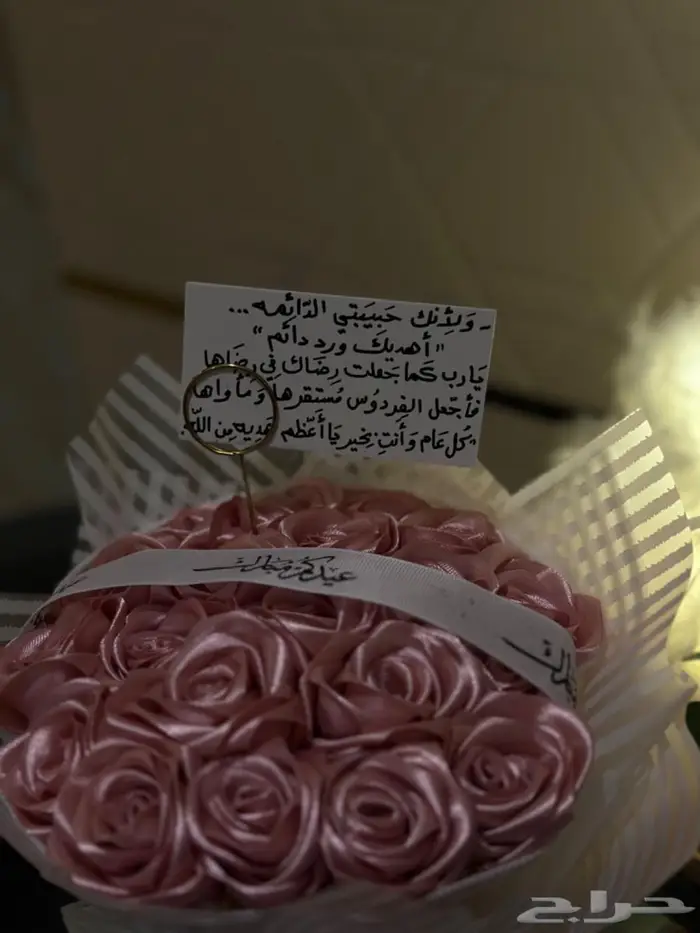 - وَلِأنك حَبيَبتي الدّائمه ...
"أهديكَ ورد دائم"
يَارب كَما جَعلت رِضَاك فِي رِضَاها
فأجّعل الفِردوُس مُستقرها وَمأواها
"كُل عَام وَ أنتِ بخير يَا أَعّظم هَديه مِن اللّه"
عيدكم مبارك
مبارك
حراج